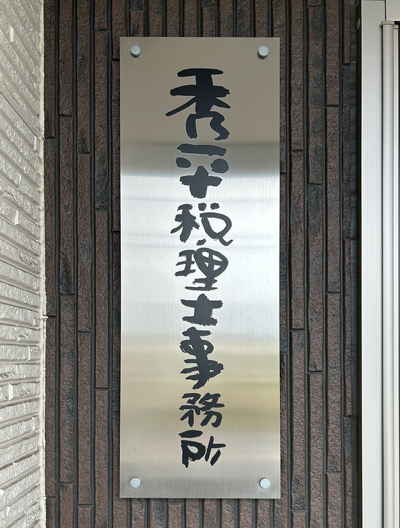 秀平税理士事務所